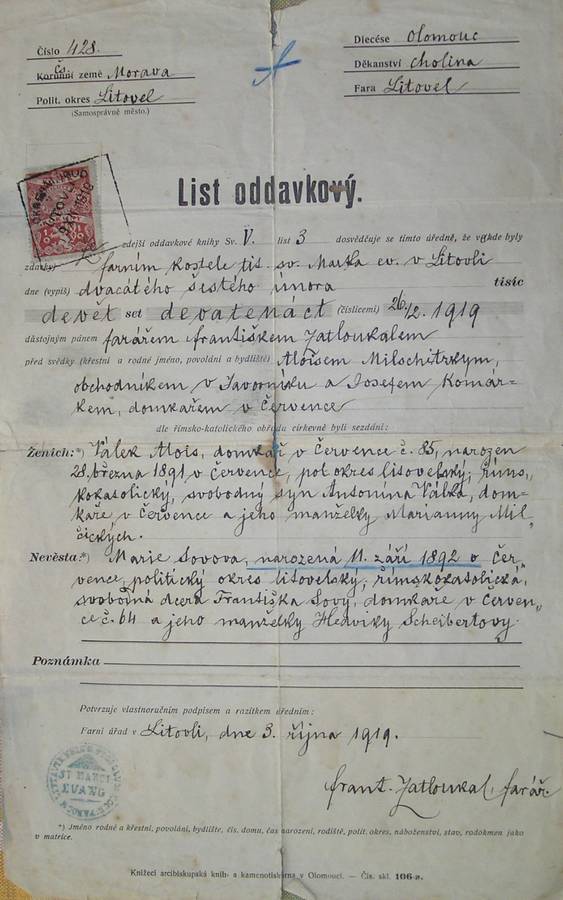 Číslo 428.
Čs. Korunní země Morava
Polit. okres Litovel
(Samosprávné město.)
Diecése Olomouc
Děkanství Cholina
Fara Litovel
List oddavkový.
zdejší oddavkové knihy Sv. V. list 3 dosvědčuje se tímto úředně, že v kde byly
zdavky farním kostele tit. sv. Marka ev. v Litovli
dne (vypiš) dvacátého šestého února tisíc
devět set devatenáct (číslicemi) 26./2. 1919
důstojným pánem farářem Františkem Zatloukalem
před svědky (křestní a rodné jméno, povolání a bydliště) Aloisem Milschitzkym,
obchodníkem v Javorníku a Josefem Komár-
kem, domkařem v Července
dle římsko-katolického obřadu církevně byli sezdáni:
Ženich:*) Válek Alois, domkař v Července č. 85, narozen
28. března 1891 v Července, pol. okres litovelský, říms.
kokatolický, svobodný syn Antonína Válka, dom-
kaře, v Července a jeho manželky Marianny Mil-
čických.
Nevěsta:*) Marie Sovova, narozená 11. září 1892 v Čer-
vence, politický okres litovelský, římskokatolická,
svobodná dcera Františka Sovy, domkaře v Červen-
ce č. 64 a jeho manželky Hedviky Scheibertovy.
Poznámka
Potvrzuje vlastnoručním podpisem a razítkem úředním:
Farní úřad v Litovli, dne 3. října 1919.
ST MARCI
EVANG
Frant. Zatloukal, farář.
*) Jméno rodné a křestní, povolání, bydliště, čís. domu, čas narození, rodiště, polit. okres, náboženství, stav, rodokmen jako
v matrice.
Knížecí arcibiskupská knih- a kamenotiskárna v Olomouci. — Čís. skl. 106-n.